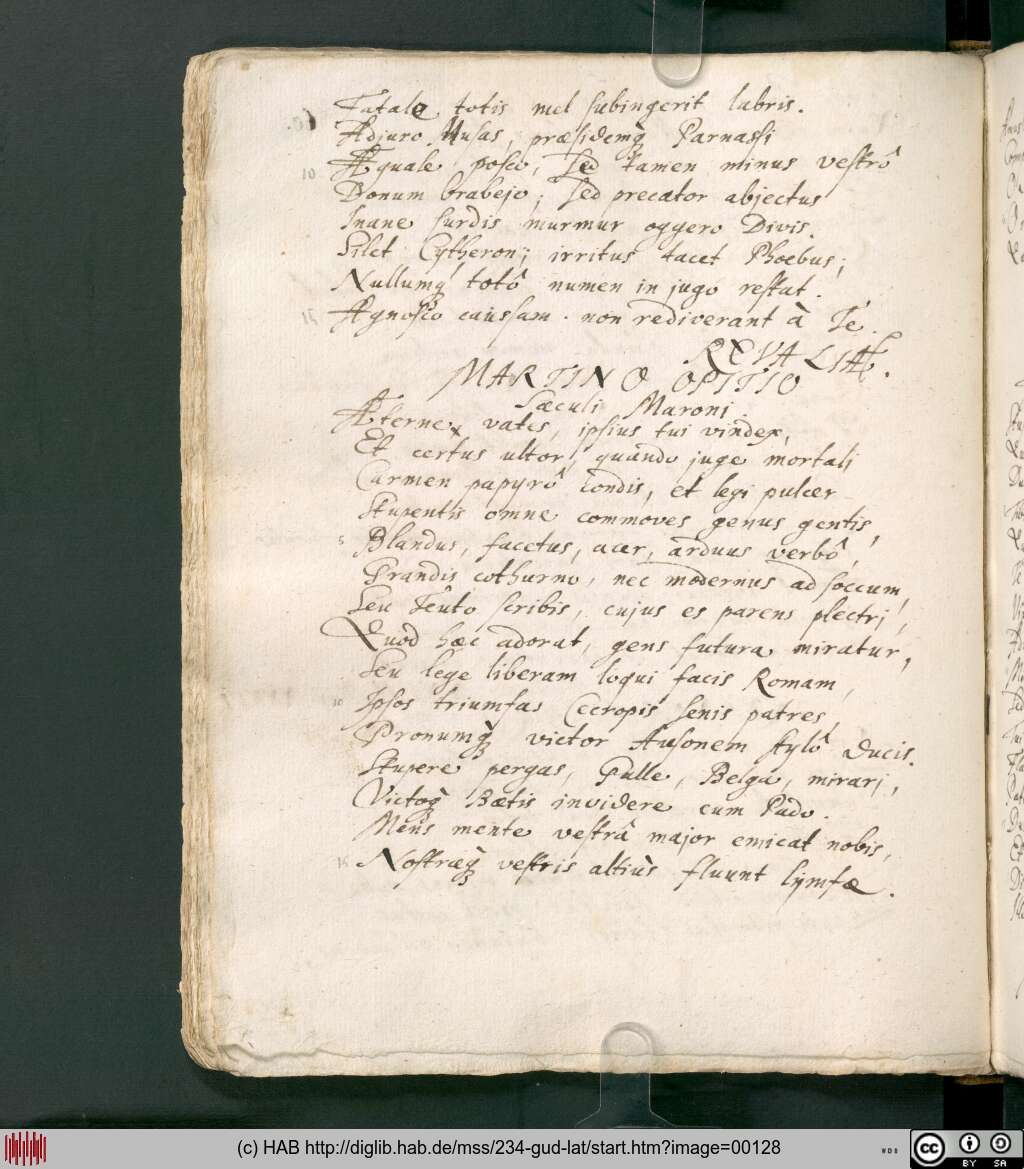 60.
Fatale totis mel subingerit labris.
Adjuro Musas, præsidemq́ Parnassi
10 Æquale posco, sed tamen minus vestrô
Donum brabejo; sed precator abjectus
Inane surdis murmur oggero Divis.
Silet Cytheron; irritus tacet Phoebus;
Nullumq́ totô numen in jugo restat.
15 Agnosco caussam. non rediverant à Te.
REVALIÆ.
MARTINO OPITIO
Sæculi Maroni.
Æterne vates, ipsius tui vindex,
Et certus ultor, quando juge mortali
Carmen papyrô condis, et legi pulcer
Stupentis omne commoves genus gentis,
5 Blandus, facetus, acer, arduus verbô,
Grandis cothurno, nec modernus ad soccum,
Seu Teuto scribis, cujus es parens plectri,
Quod hæc adorat, gens futura miratur,
Seu lege liberam loqui facis Romam,
10 Ipsos triumfas Cecropis senis patres,
Pronumq́ victor Ausonem stylô ducis.
Stupere pergas, Galle, Belga, mirari,
Victoq́ Bætis invidere cum Pado.
Mens mente vestrâ major emicat nobis,
15 Nostræq́ vestris altiùs fluunt lymfæ.
(c) HAB http://diglib.hab.de/mss/234-gud-lat/start.htm?image=00128
WDB
cc
BY SA